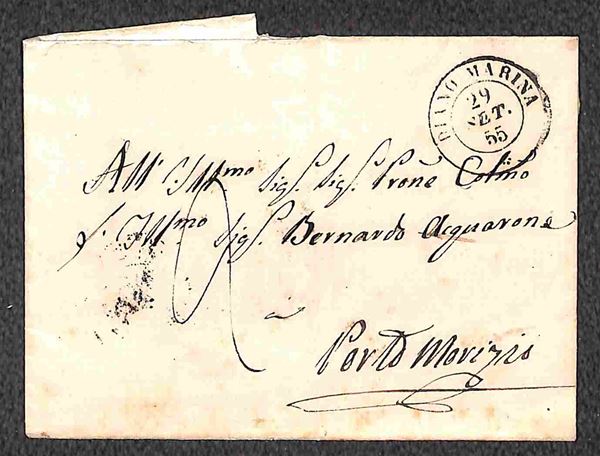 DIANO MARINA
29
SET.
55
All' Ill.mo Sig.r Sig.r Prone Colmo
Ill.mo Sig.r Bernardo Acquarone
Porto Morizio